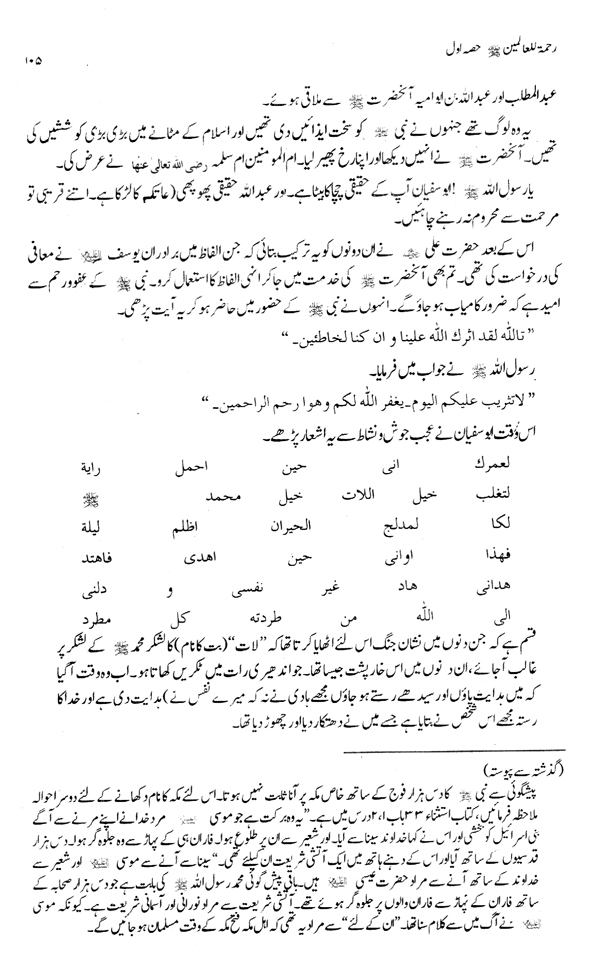 رحمۃ للعالمین ﷺ حصہ اول
۱۰۵
عبدالمطلب اور عبداللہ بن ابو امیہ آنحضرت ﷺ سے ملاقی ہوئے۔
یہ وہ لوگ تھے جنہوں نے نبی ﷺ کو سخت ایذائیں دی تھیں اور اسلام کے مٹانے میں بڑی بڑی کوششیں کی
تھیں۔ آنحضرت ﷺ نے انہیں دیکھا اور اپنا رخ پھیر لیا۔ ام المومنین ام سلمہ رضی اللہ تعالی عنہا نے عرض کی۔
یارسول اللہ ﷺ! ابوسفیان آپ کے حقیقی چچا کا بیٹا ہے۔ اور عبداللہ حقیقی پھوپھی (عاتکہ کا لڑکا ہے۔ اتنے قریبی تو
مرحمت سے محروم نہ رہنے چاہئیں۔
اس کے بعد حضرت علی ؓ نے ان دونوں کو یہ ترکیب بتائی کہ جن الفاظ میں برادران یوسف علیہ السلام نے معافی
کی درخواست کی تھی۔ تم بھی آنحضرت ﷺ کی خدمت میں جا کر انہی الفاظ کا استعمال کرو۔ نبی ﷺ کے عفو و رحم سے
امید ہے کہ ضرور کامیاب ہو جاؤ گے۔ انہوں نے نبی ﷺ کے حضور میں حاضر ہو کر یہ آیت پڑھی۔
”تاللہ لقد اثرك اللہ علینا و ان کنا لخاطئین۔“
رسول اللہ ﷺ نے جواب میں فرمایا۔
”لاتثریب علیکم الیوم۔ یغفر اللہ لکم وھوا رحم الراحمین۔“
اس وقت ابوسفیان نے عجب جوش و نشاط سے یہ اشعار پڑھے۔
لعمرك انی حین احمل رایة
لتغلب خیل اللات خیل محمد ﷺ
لکا لمدلج الحیران اظلم لیلة
فھذا اوانی حین اھدی فاھتد
ھدانی ھاد غیر نفسی و دلنی
الی اللہ من طردته کل مطرد
قسم ہے کہ جن دنوں میں نشان جنگ اس لئے اٹھایا کرتا تھا کہ ”لات“ (بت کا نام) کا لشکر محمد ﷺ کے لشکر پر
غالب آجائے، ان دنوں میں اس خارپشت جیسا تھا۔ جو اندھیری رات میں ٹکریں کھاتا ہو۔ اب وہ وقت آگیا
کہ میں ہدایت پاؤں اور سیدھے رستے ہو جاؤں مجھے ہادی نے نہ کہ میرے نفس نے) ہدایت دی ہے اور خدا کا
رستہ مجھے اس شخص نے بتایا ہے جسے میں نے دھتکار دیا اور چھوڑ دیا تھا۔
(گذشتہ سے پیوستہ)
پیشگوئی سے نبی ﷺ کا دس ہزار فوج کے ساتھ خاص مکہ پر آنا ثابت نہیں ہوتا۔ اس لئے مکہ کا نام دکھانے کے لئے دوسرا حوالہ
ملاحظہ فرمائیں، کتاب استثناء ۳۳ باب ۲،۱ درس میں ہے۔ ”یہ وہ برکت ہے جو موسی مرد خدا نے اپنے مرنے سے آگے
بنی اسرائیل کو بخشی اور اس نے کہا خداوند سینا سے آیا۔ اور شعیر سے ان پر طلوع ہوا۔ فاران ہی کے پہاڑ سے وہ جلوہ گر ہوا۔ دس ہزار
قدسیوں کے ساتھ آیا اور اس کے دہنے ہاتھ میں ایک آتشی شریعت ان کیلئے تھی۔“ سینا سے آنے سے موسی علیہ السلام اور شعیر سے
خداوند کے ساتھ آنے سے مراد حضرت عیسی علیہ السلام ہیں۔ باقی پیش گوئی محمد رسول اللہ ﷺ کی بابت ہے جو دس ہزار صحابہ کے
ساتھ فاران کے پہاڑ سے فاران والوں پر جلوہ گر ہوئے تھے۔ آتشی شریعت سے مراد نورانی اور آسمانی شریعت ہے۔ کیونکہ موسی
علیہ السلام نے آگ میں سے کلام سنا تھا۔ ”ان کے لئے“ سے مراد یہ تھی کہ اہل مکہ فتح مکہ کے وقت مسلمان ہو جائیں گے۔